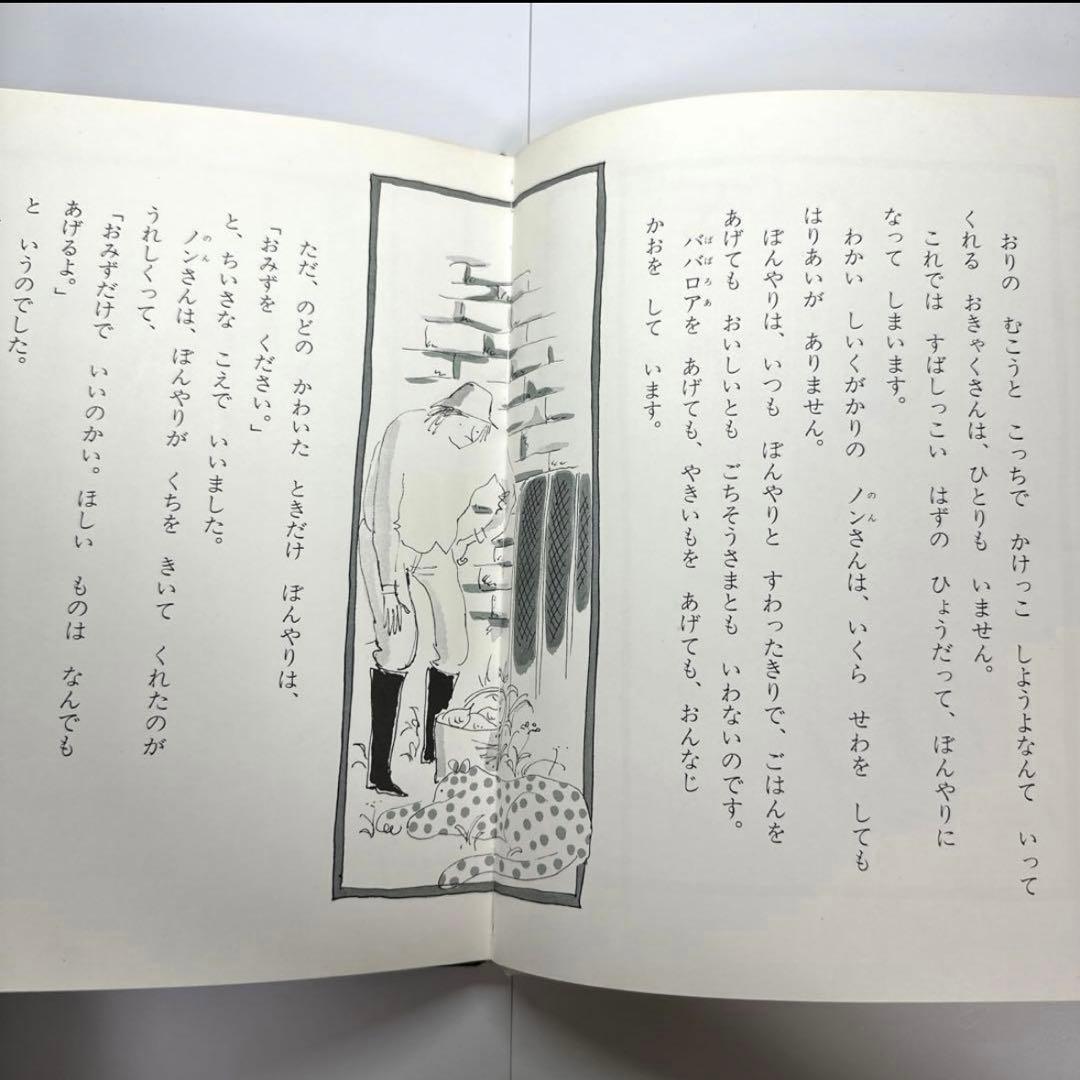 おりの むこうと こっちで かけっこ しようよなんて いって
くれる おきゃくさんは、ひとりも いません。
これでは すばしっこい はずの ひょうだって、ぼんやりに
なって しまいます。
わかい しいくがかりの ノンさんは、いくら せわを しても
はりあいが ありません。
ぼんやりは、いつも ぼんやりと すわったきりで、ごはんを
あげても おいしいとも ごちそうさまとも いわないのです。
ババロアを あげても、やきいもを あげても、おんなじ
かおを して います。
ただ、のどの かわいた ときだけ ぼんやりは、
「おみずを ください。」
と、ちいさな こえで いいました。
ノンさんは、ぼんやりが くちを きいて くれたのが
うれしくって、
「おみずだけで いいのかい。ほしい ものは なんでも
あげるよ。」
と いうのでした。